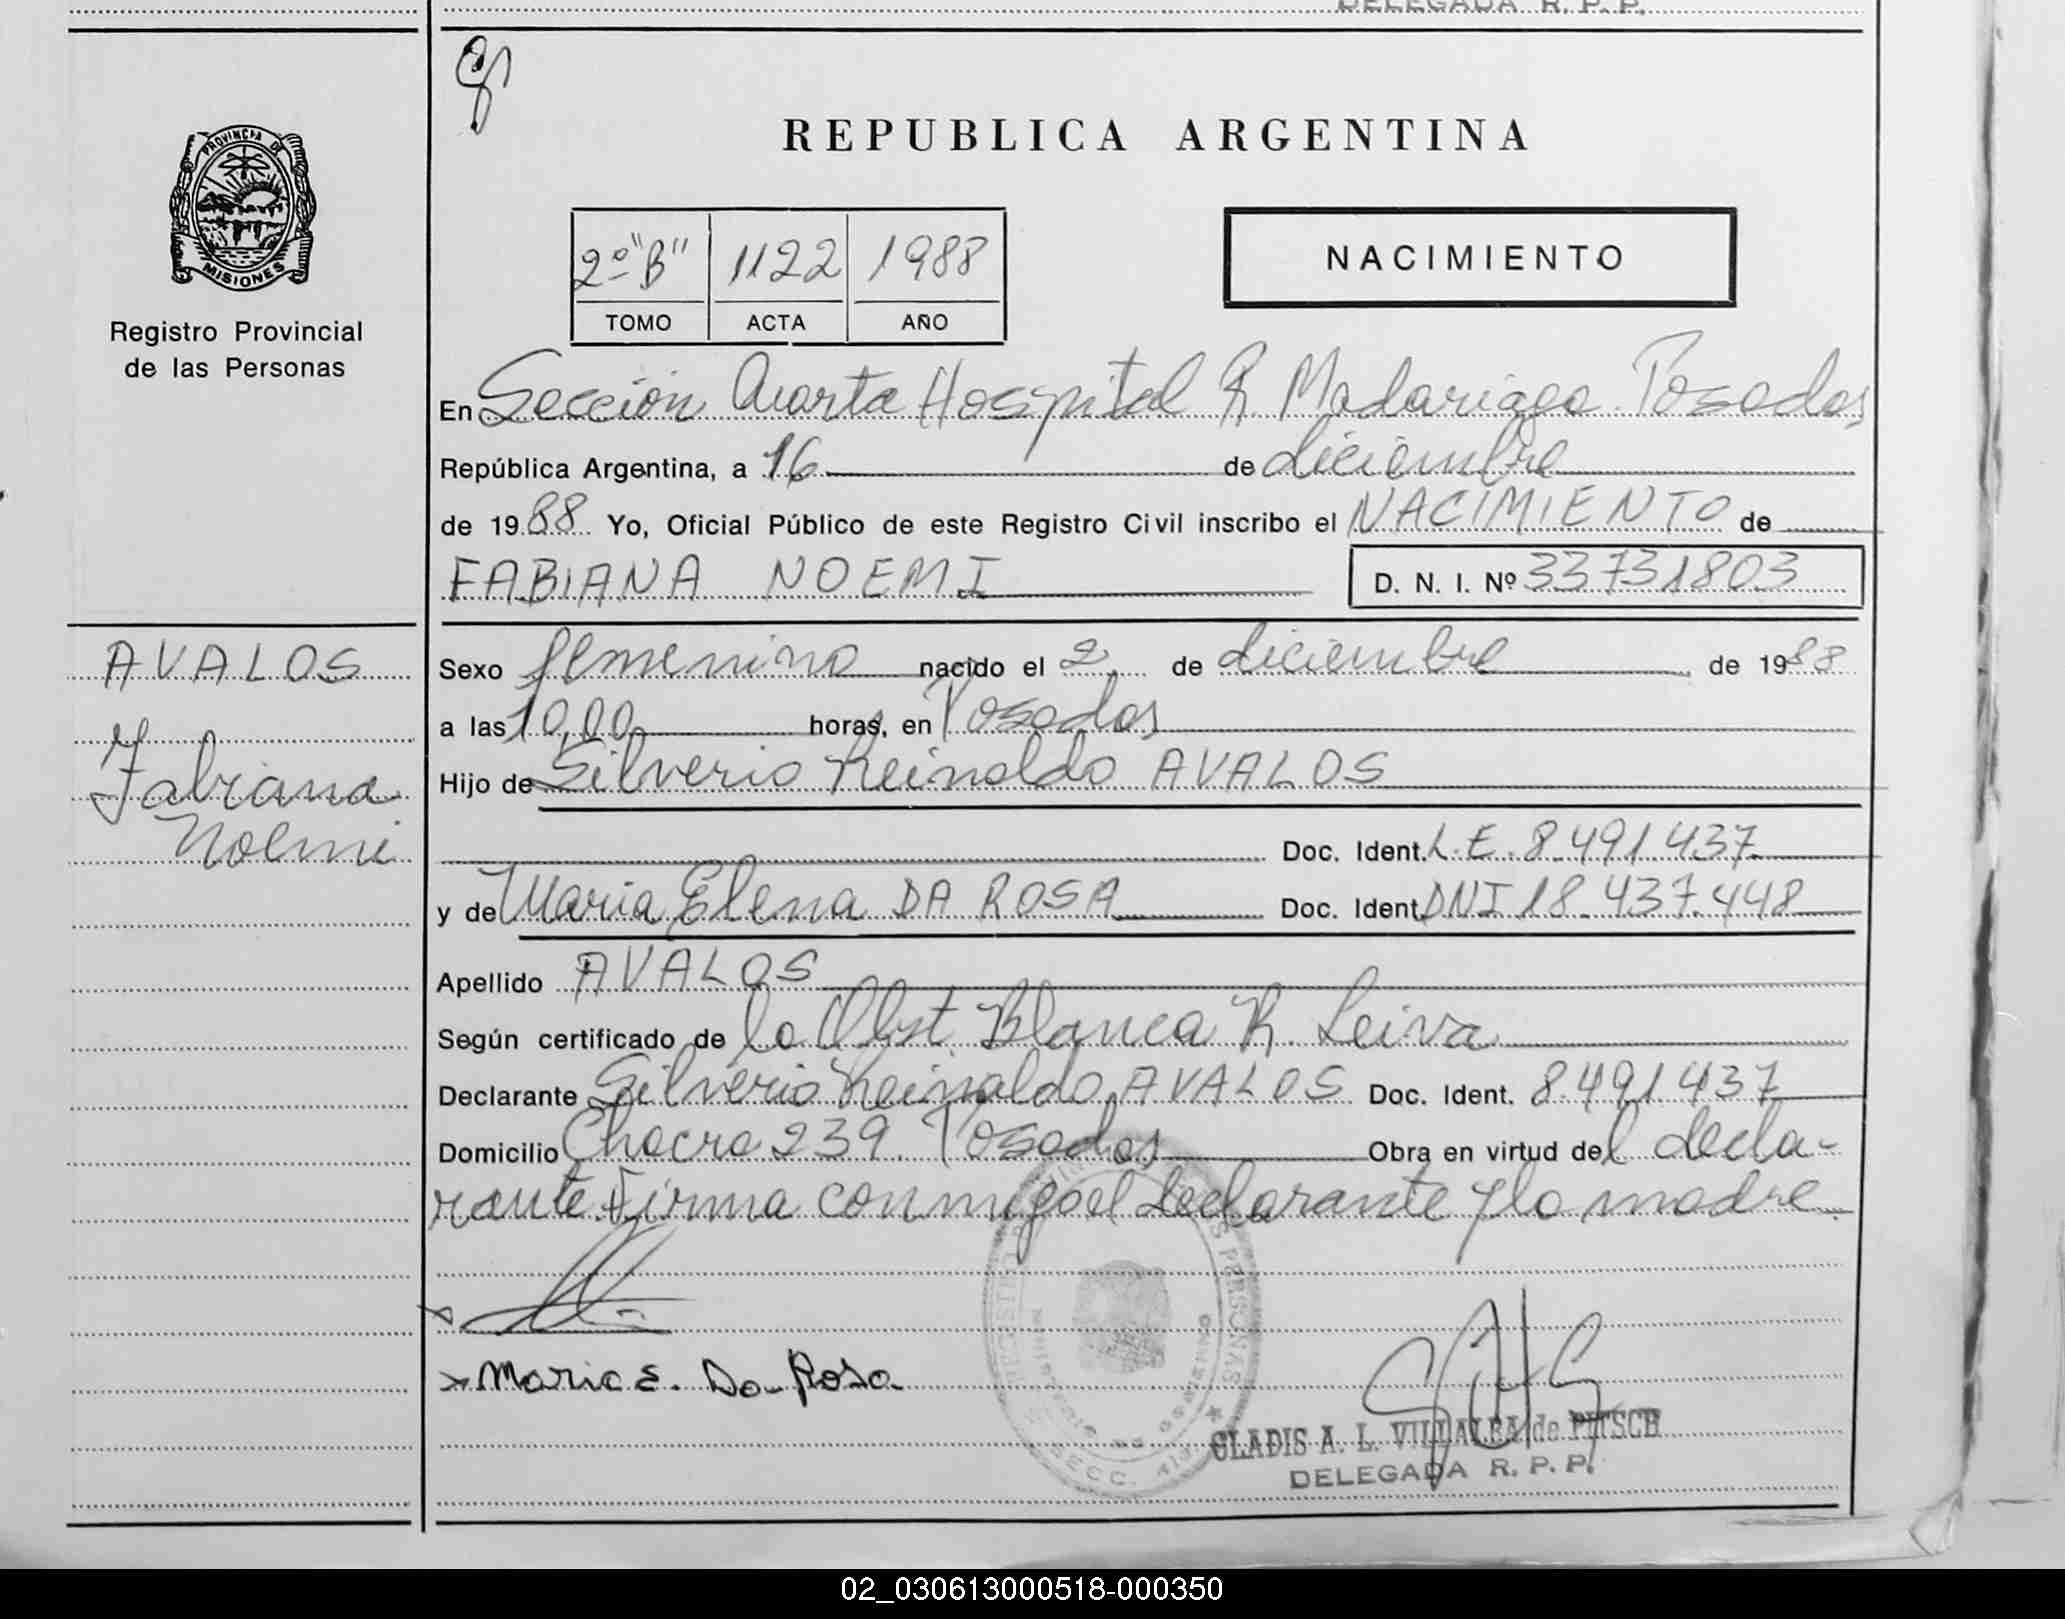 DELEGADA R. P. P.
PROVINCIA DE
MISIONES
Registro Provincial
de las Personas
REPUBLICA ARGENTINA
2º "B" 1122 1988
TOMO ACTA AÑO
NACIMIENTO
En Sección Cuarta Hospital R. Madariaga. Posadas
República Argentina, a 16 de diciembre
de 1988 Yo, Oficial Público de este Registro Civil inscribo el NACIMIENTO de
FABIANA NOEMI D. N. I. Nº 33731803
AVALOS
Fabiana
Noemi
Sexo femenino nacido el 2 de diciembre de 1988
a las 10,00 horas, en Posadas
Hijo de Silverio Reinaldo AVALOS
Doc. Ident. L.E. 8.491.437
y de Maria Elena DA ROSA Doc. Ident. DNI 18.437.448
Apellido AVALOS
Según certificado de la Obst. Blanca R. Leiva
Declarante Silverio Reinaldo AVALOS Doc. Ident. 8.491.437
Domicilio Chacra 239. Posadas Obra en virtud del decla-
rante. Firma conmigo el declarante y la madre.
x Maria E. Da Rosa
SECC. 4ta
GLADIS A. L. VILLALBA de PITSCH
DELEGADA R. P. P.
02_030613000518-000350